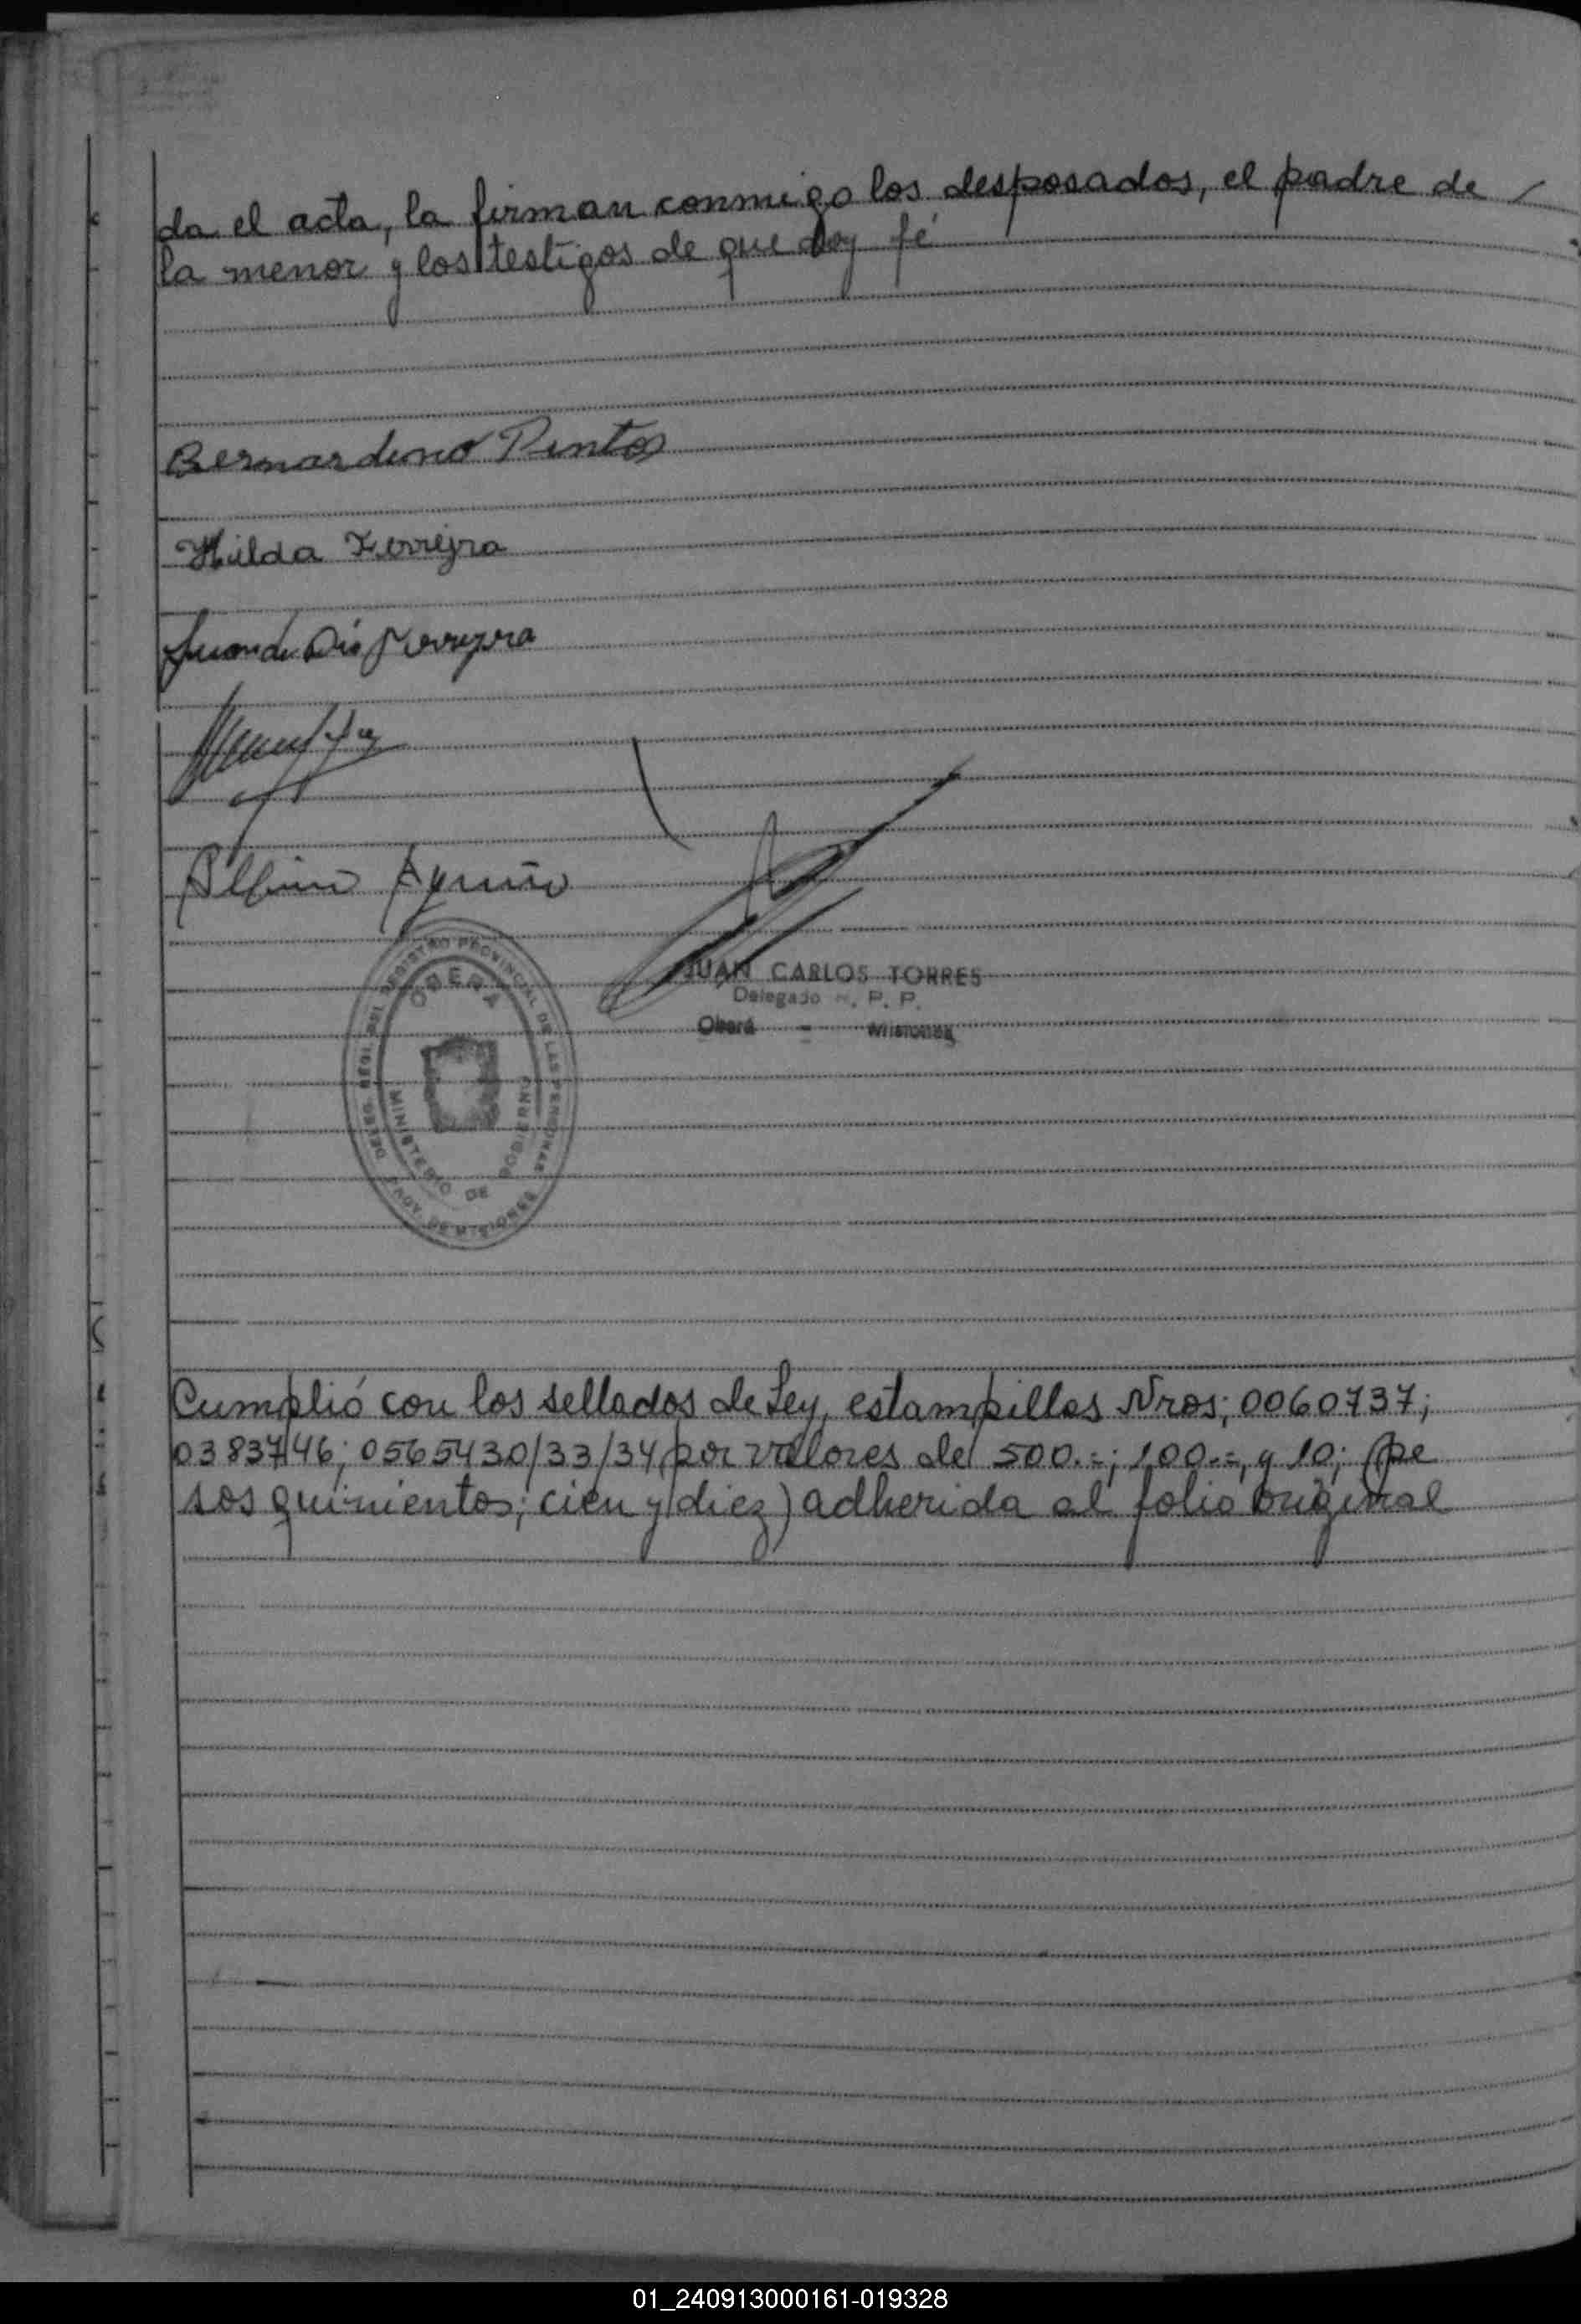 da el acta, la firman conmigo los desposados, el padre de /
la menor y los testigos de que doy fé
Bernardino Pintos
Hilda Ferreyra
Juan de Dio Ferreyra
JUAN CARLOS TORRES
Delegado R. P. P.
Oberá - Misiones
DELEG. DEL REGISTRO PROVINCIAL DE LAS PERSONAS
OBERA
MINISTERIO DE GOBIERNO
PROV. DE MISIONES
Cumplió con los sellados de Ley, estampillas Nros; 0060737;
0383746; 0565430/33/34 por valores de 500.=; 100.=, y 10; (pe
sos quinientos; cien y diez) adherida al folio original
01_240913000161-019328